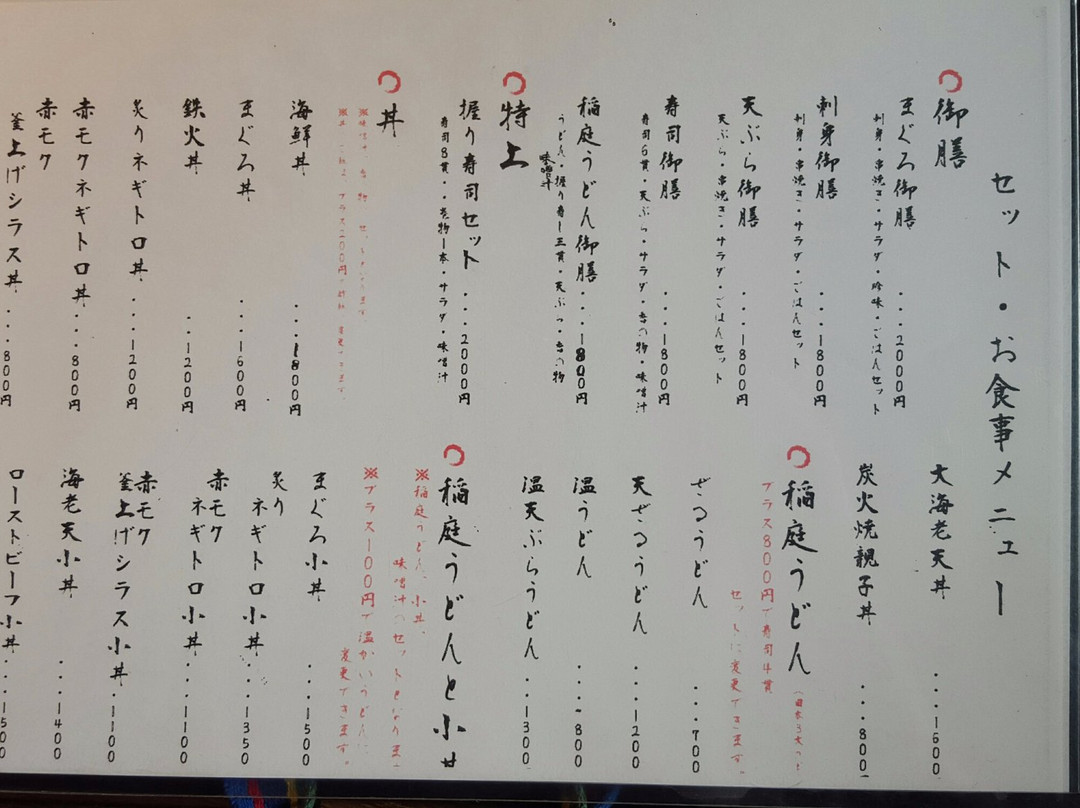 セット・お食事メニュー
御膳
まぐろ御膳...2000円
刺身・串焼き・サラダ・珍味・ごはんセット
刺身御膳...1800円
刺身・串焼き・サラダ・ごはんセット
天ぷら御膳...1800円
天ぷら・串焼き・サラダ・ごはんセット
寿司御膳...1800円
寿司6貫・天ぷら・サラダ・香の物・味噌汁
稲庭うどん御膳...1800円
うどん・握り寿し三貫・天ぷら・香の物
味噌汁
特上
握り寿司セット...2000円
寿司8貫・巻物1本・サラダ・味噌汁
丼
※味噌汁、香の物、セットになります。
プラス200円で
変更できます。
海鮮丼...1800円
まぐろ丼...1600円
鉄火丼...1200円
炙りネギトロ丼...1200円
赤モクネギトロ丼...800円
赤モク
釜上げシラス丼...800円
大海老天丼...1600
炭火焼親子丼...800
稲庭うどん
プラス800円で寿司4貫
セットに変更できます。
ざるうどん...700
天ざるうどん...1200
温うどん...800
温天ぷらうどん...1300
稲庭うどんと小丼
※稲庭うどん、小丼、
味噌汁のセットとなりま
※プラス100円で温かいうどんに
変更できます。
まぐろ小丼...1500
炙り
ネギトロ小丼...1350
赤モク
ネギトロ小丼...1100
赤モク
釜上げシラス小丼...1100
海老天小丼...1400
ローストビーフ小丼...1500